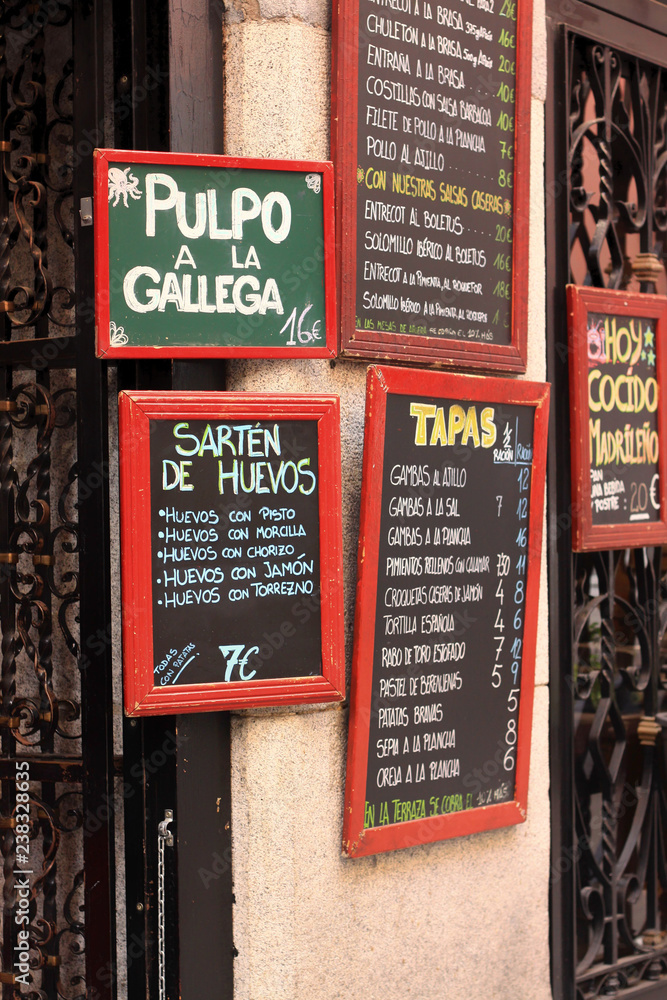 PULPO
A LA
GALLEGA
16€
SARTÉN
DE HUEVOS
•HUEVOS CON PISTO
•HUEVOS CON MORCILLA
•HUEVOS CON CHORIZO
•HUEVOS CON JAMÓN
•HUEVOS CON TORREZNO
TODAS
CON PATATAS
7€
ENTRECOT A LA BRASA
CHULETÓN A LA BRASA 16€
ENTRAÑA A LA BRASA 20€
COSTILLAS CON SALSA BARBACOA 10€
FILETE DE POLLO A LA PLANCHA 7€
POLLO AL AJILLO 8€
CON NUESTRAS SALSAS CASERAS
ENTRECOT AL BOLETUS 20€
SOLOMILLO IBÉRICO AL BOLETUS 16€
ENTRECOT A LA PIMIENTA, AL ROQUEFOR
SOLOMILLO IBÉRICO A LA PIMIENTA, AL ROQUEFOR
EN LAS MESAS DE AFUERA SE COBRA EL 10% MÁS
TAPAS
½ RACIÓN RACIÓN
GAMBAS AL AJILLO 12
GAMBAS A LA SAL 7 12
GAMBAS A LA PLANCHA 16
PIMIENTOS RELLENOS CON CALAMAR 7'50 11
CROQUETAS CASERAS DE JAMÓN 4 8
TORTILLA ESPAÑOLA 4 6
RABO DE TORO ESTOFADO 7 12
PASTEL DE BERENJENAS 5 9
PATATAS BRAVAS 5
SEPIA A LA PLANCHA 8
OREJA A LA PLANCHA 6
EN LA TERRAZA SE COBRA EL 10% MÁS
HOY
COCIDO
MADRILEÑO
PAN
UNA BEBIDA
POSTRE 20€
Adobe Stock
238328635